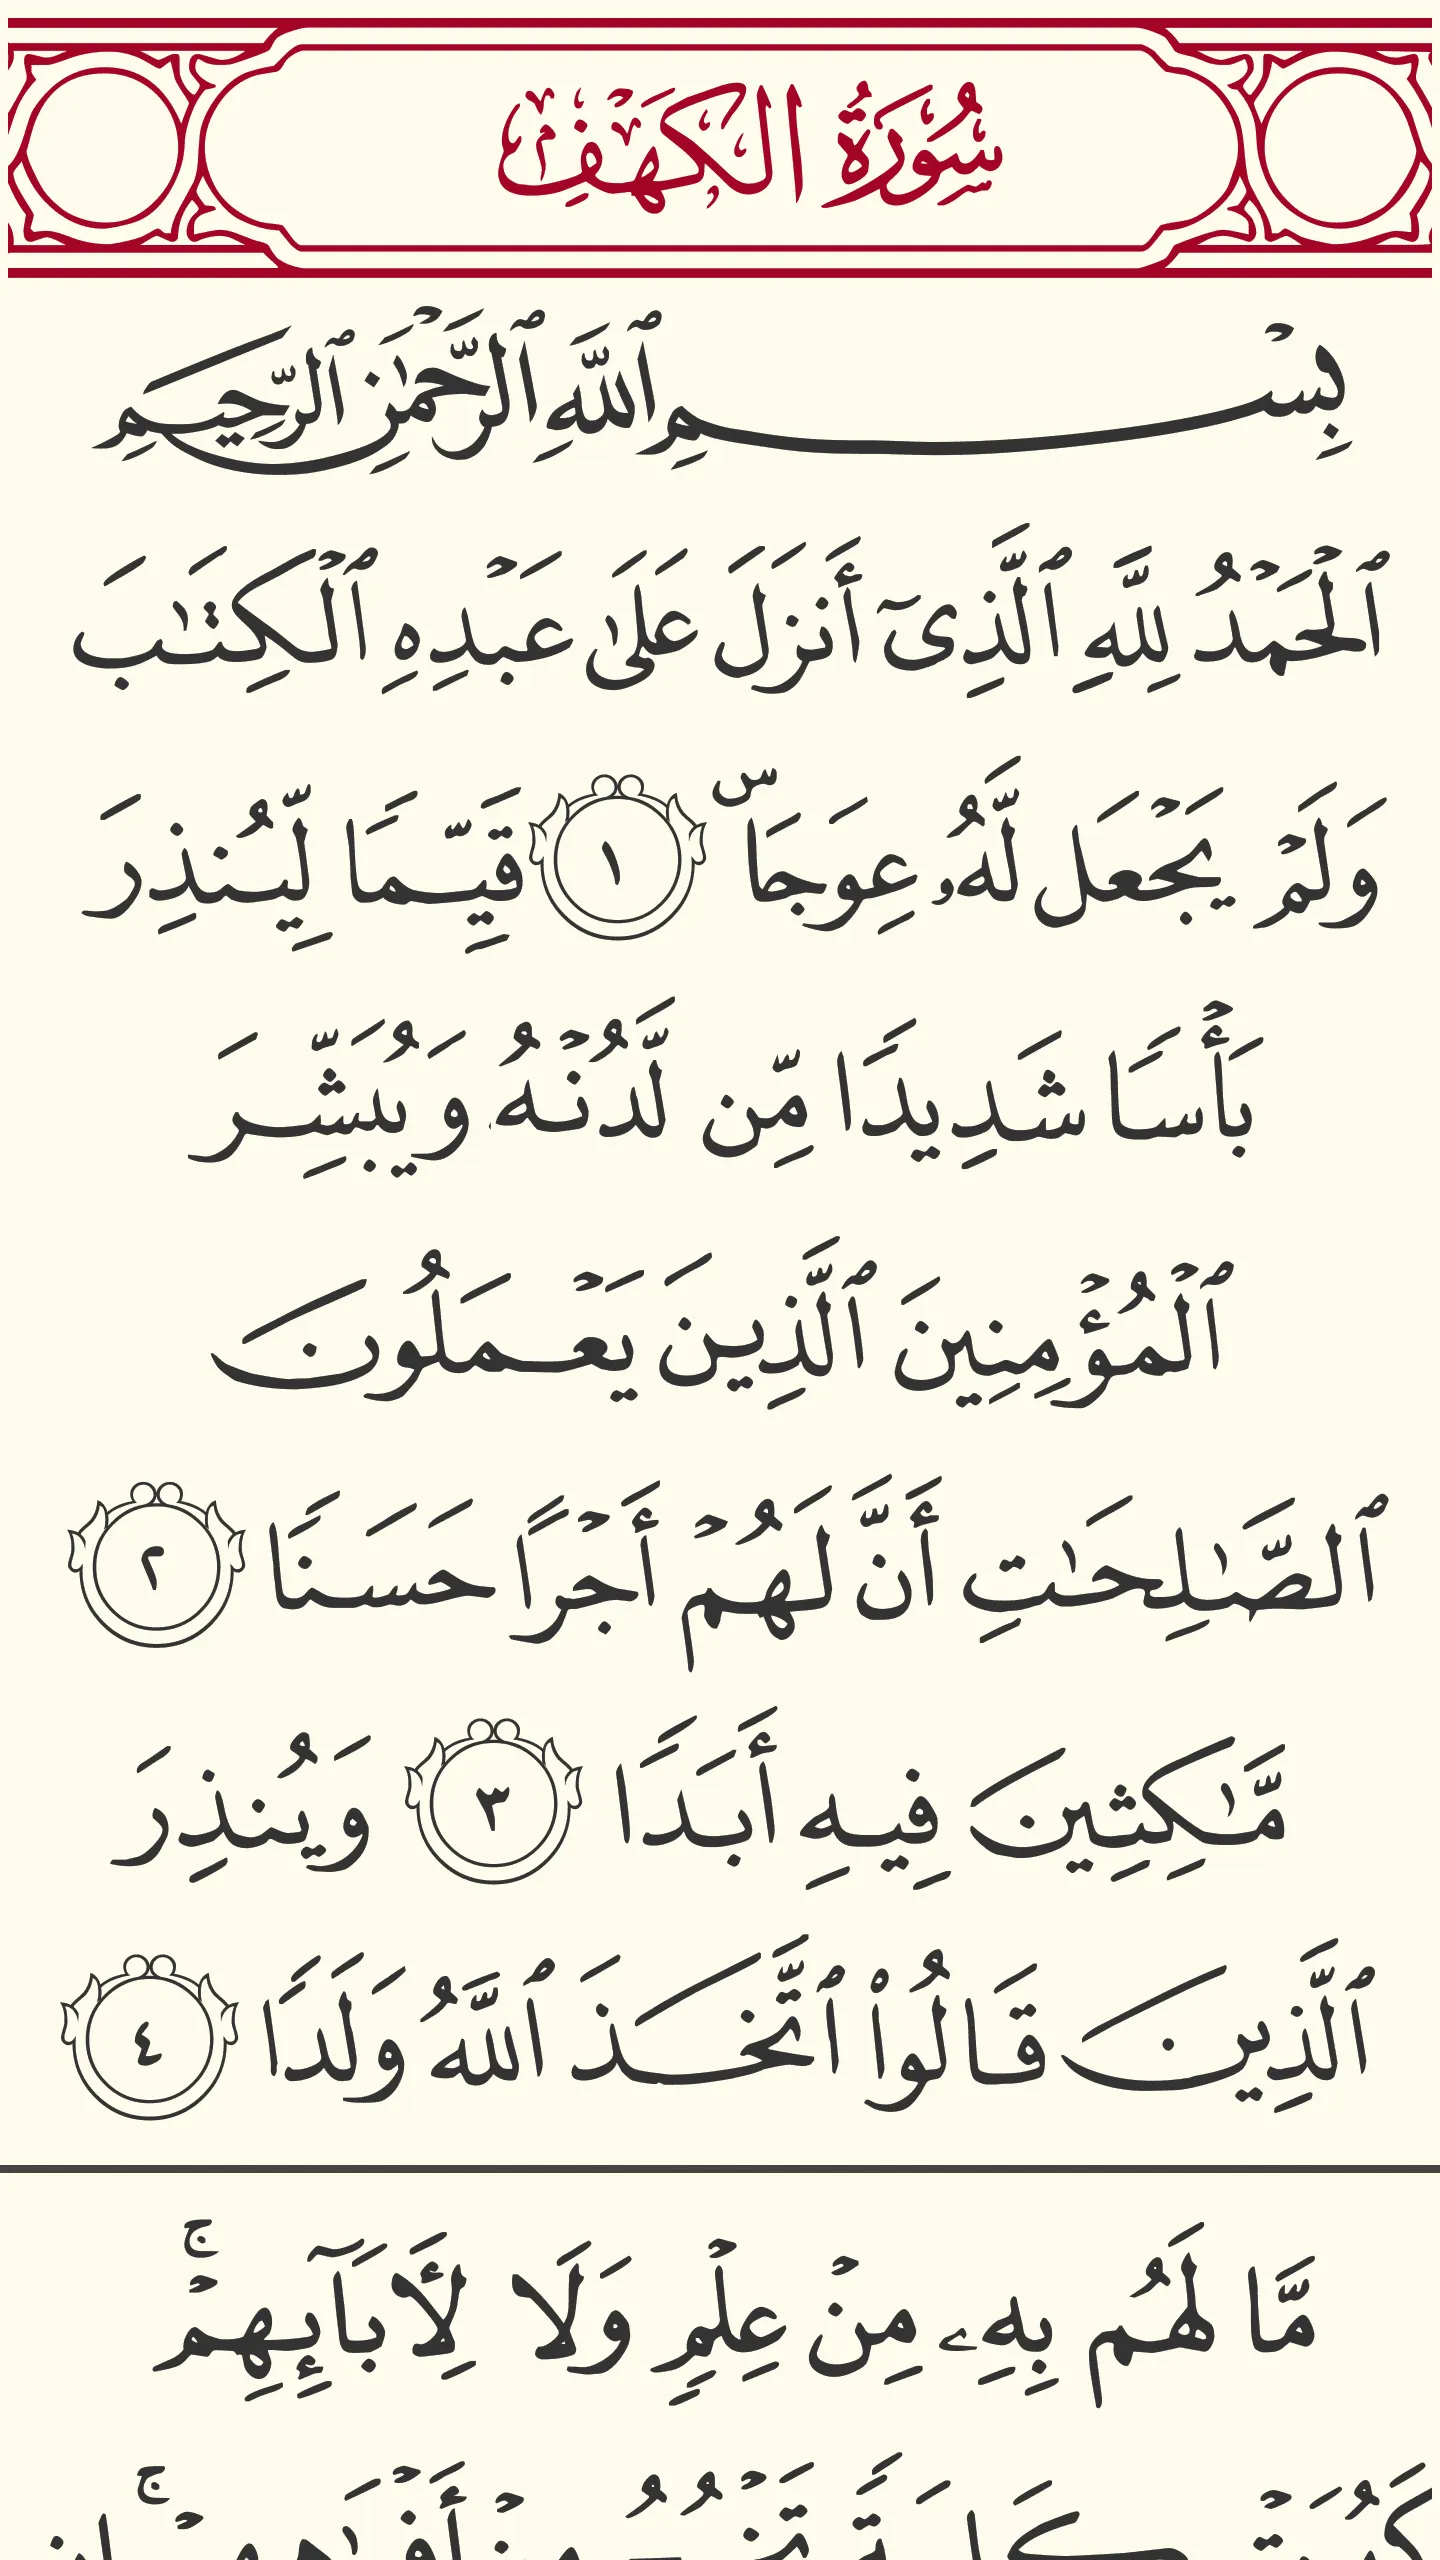 سُورَةُ الكَهْفِ
بِسْمِ ٱللَّهِ ٱلرَّحْمَٰنِ ٱلرَّحِيمِ
ٱلْحَمْدُ لِلَّهِ ٱلَّذِىٓ أَنزَلَ عَلَىٰ عَبْدِهِ ٱلْكِتَٰبَ
وَلَمْ يَجْعَل لَّهُۥ عِوَجَاۜ ١ قَيِّمًا لِّيُنذِرَ
بَأْسًا شَدِيدًا مِّن لَّدُنْهُ وَيُبَشِّرَ
ٱلْمُؤْمِنِينَ ٱلَّذِينَ يَعْمَلُونَ
ٱلصَّٰلِحَٰتِ أَنَّ لَهُمْ أَجْرًا حَسَنًا ٢
مَّٰكِثِينَ فِيهِ أَبَدًا ٣ وَيُنذِرَ
ٱلَّذِينَ قَالُوا۟ ٱتَّخَذَ ٱللَّهُ وَلَدًا ٤
مَّا لَهُم بِهِۦ مِنْ عِلْمٍ وَلَا لِأَبَآئِهِمْ ۚ